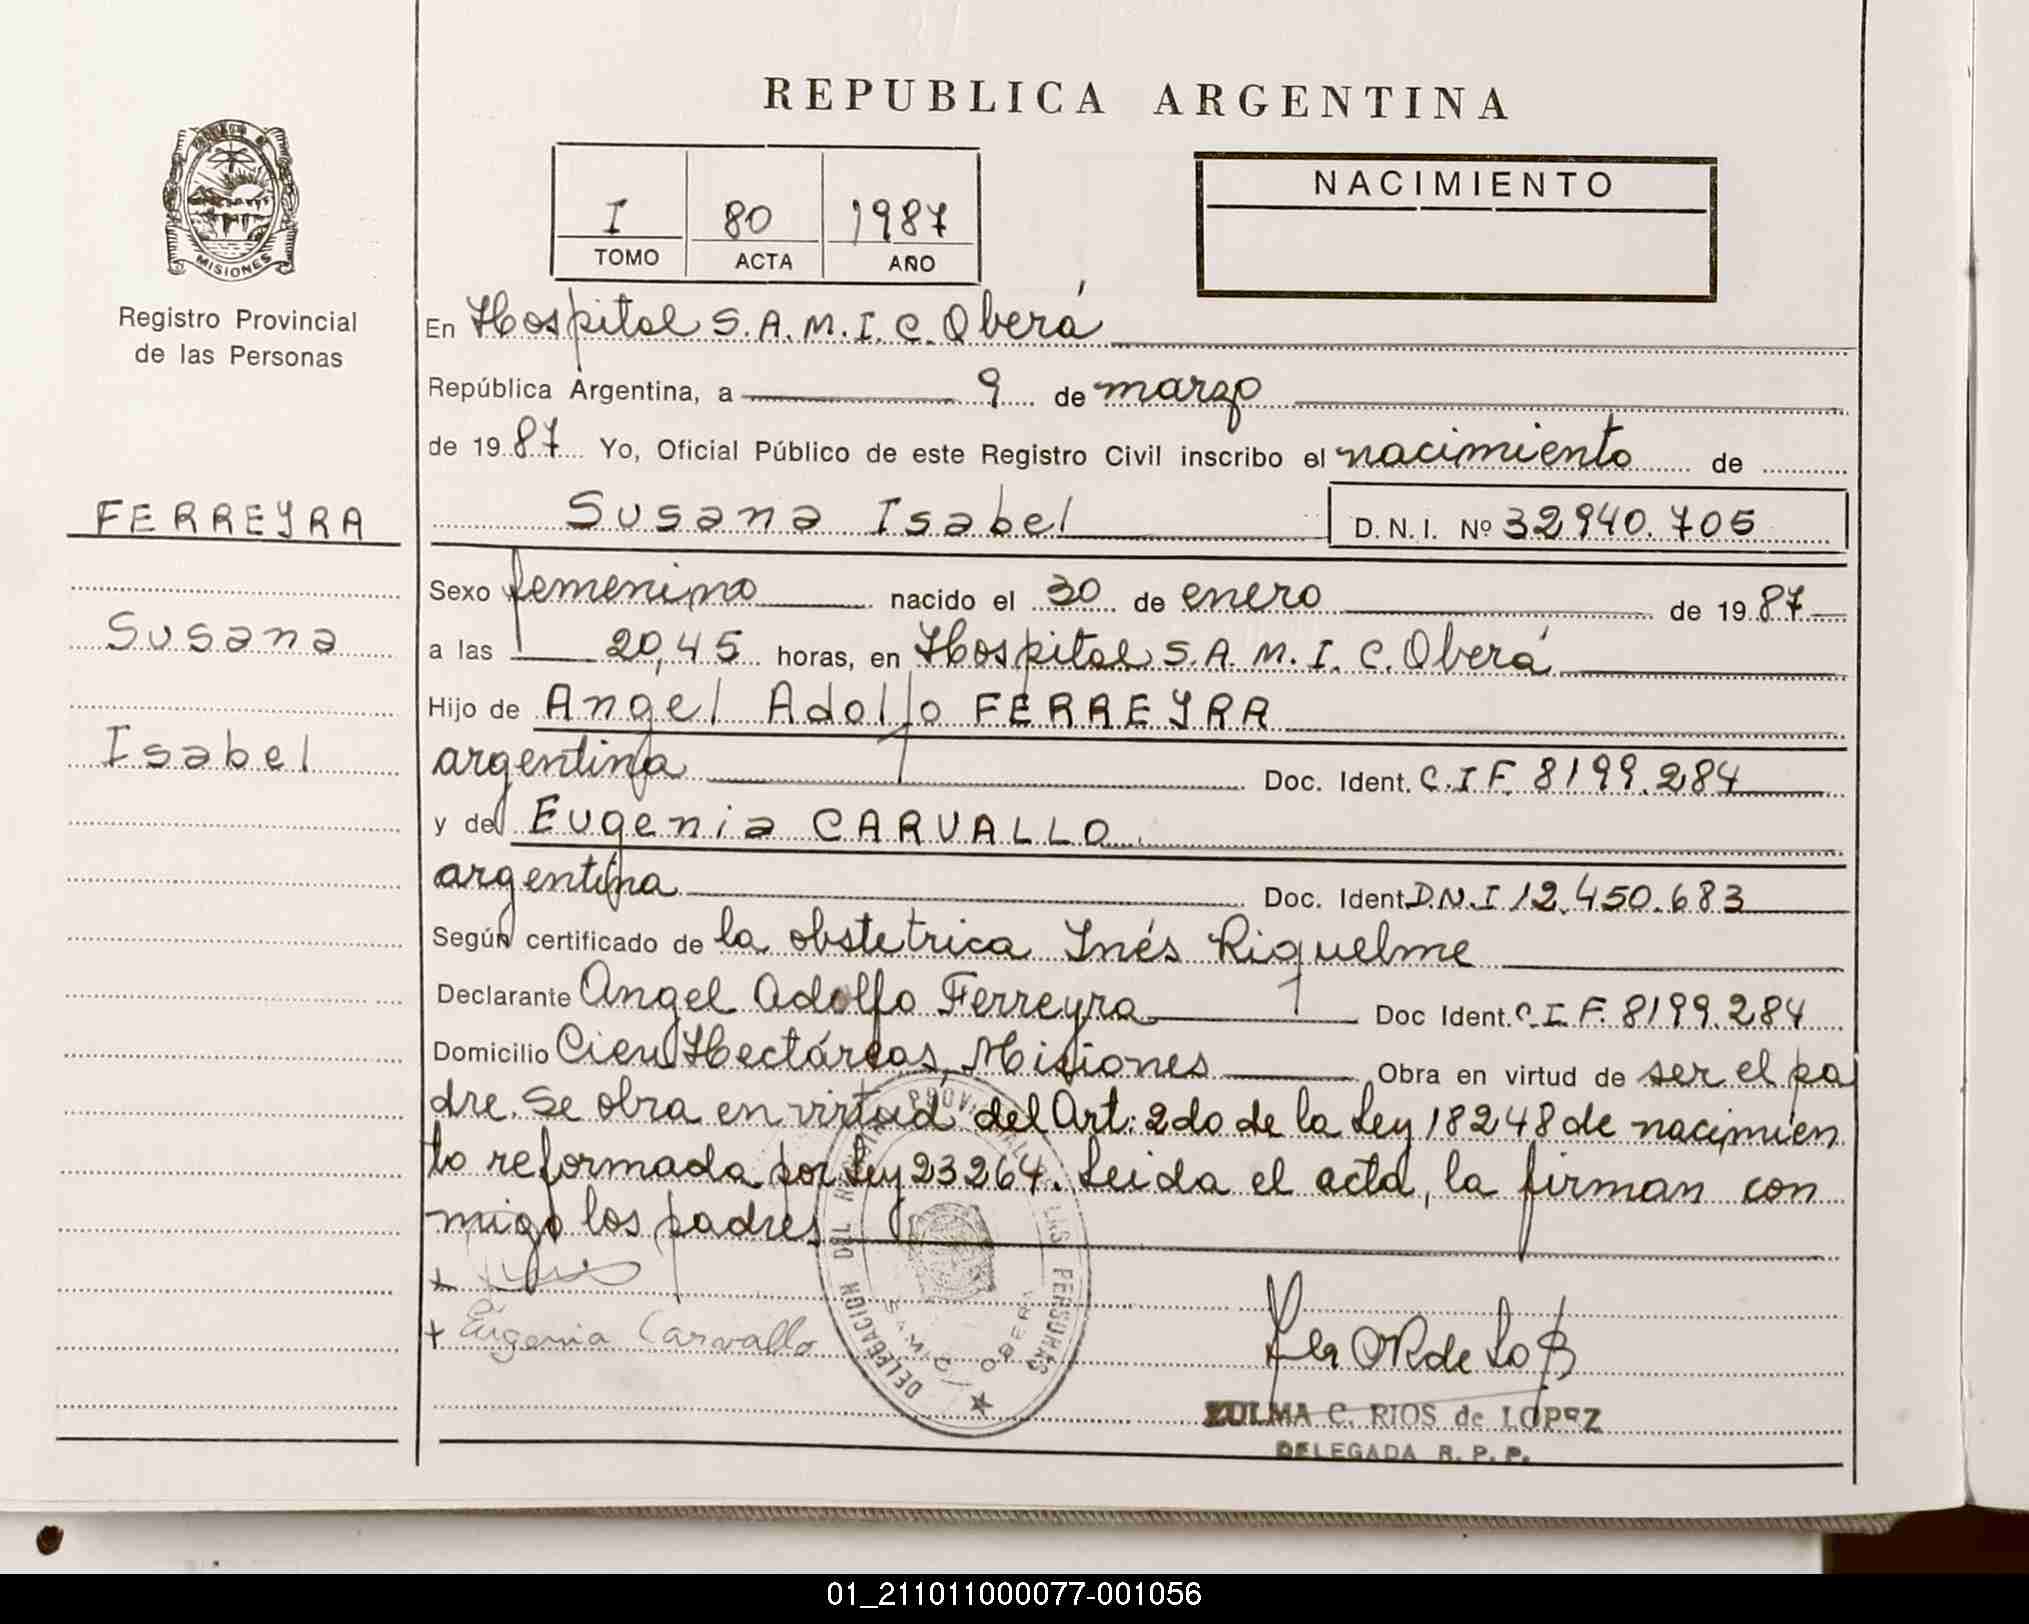 REPUBLICA ARGENTINA
PROVINCIA DE
MISIONES
Registro Provincial
de las Personas
FERREYRA
Susana
Isabel
I 80 1987
TOMO ACTA AÑO
NACIMIENTO
En Hospital S.A.M.I.C. Oberá
República Argentina, a 9 de marzo
de 1987 Yo, Oficial Público de este Registro Civil inscribo el nacimiento de
Susana Isabel D.N.I. Nº 32940.705
Sexo femenino nacido el 30 de enero de 1987
a las 20,45 horas, en Hospital S.A.M.I.C. Oberá
Hijo de Angel Adolfo FERREYRA
argentina Doc. Ident. C.I F. 8199.284
y de Eugenia CARVALLO
argentina Doc. Ident. D.N.I 12.450.683
Según certificado de la obstetrica Inés Riquelme
Declarante Angel Adolfo Ferreyra Doc Ident. C.I F. 8199.284
Domicilio Cien Hectáreas, Misiones Obra en virtud de ser el pa
dre. Se obra en virtud del Art. 2do de la Ley 18248 de nacimien
to reformada por Ley 23264. Leida el acta, la firman con
migo los padres
+
+ Eugenia Carvallo
DELEGACION DEL REGISTRO PROVINCIAL DE LAS PERSONAS
SAMIC OBERA
ZULMA C. RIOS de LOPEZ
DELEGADA R. P. P.
01_211011000077-001056